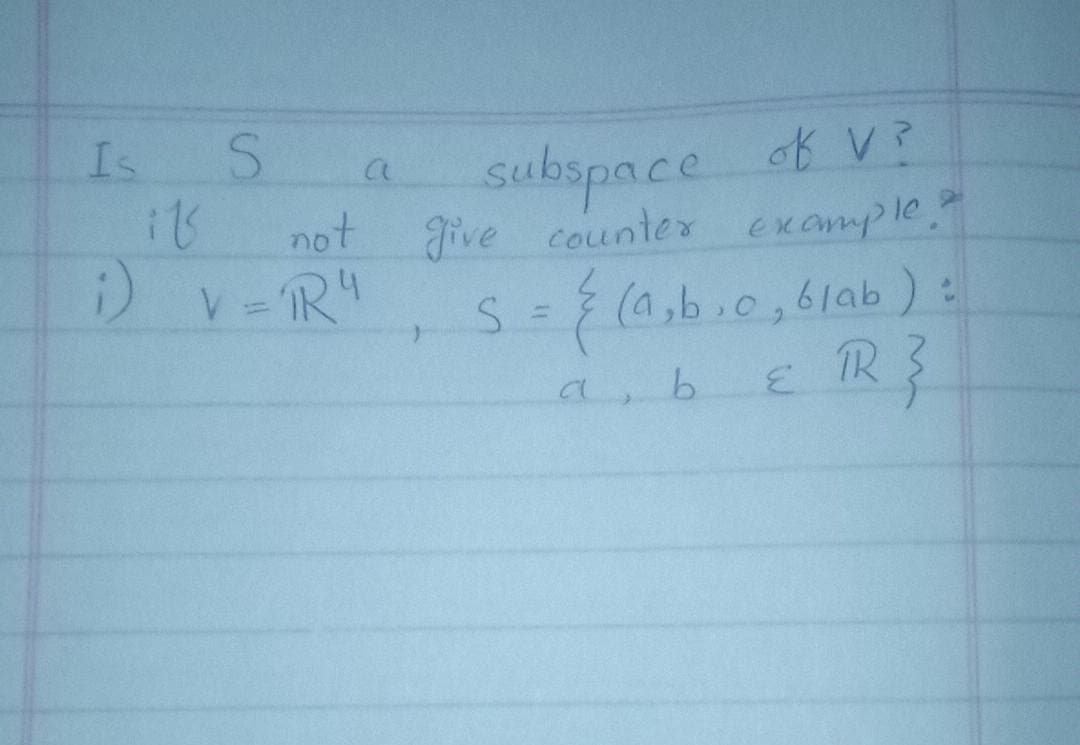 Is S a subspace of V?
if not give counter example.?
i) V = ℝ⁴, S = { (a, b, 0, 61ab ) :
a, b ε ℝ }